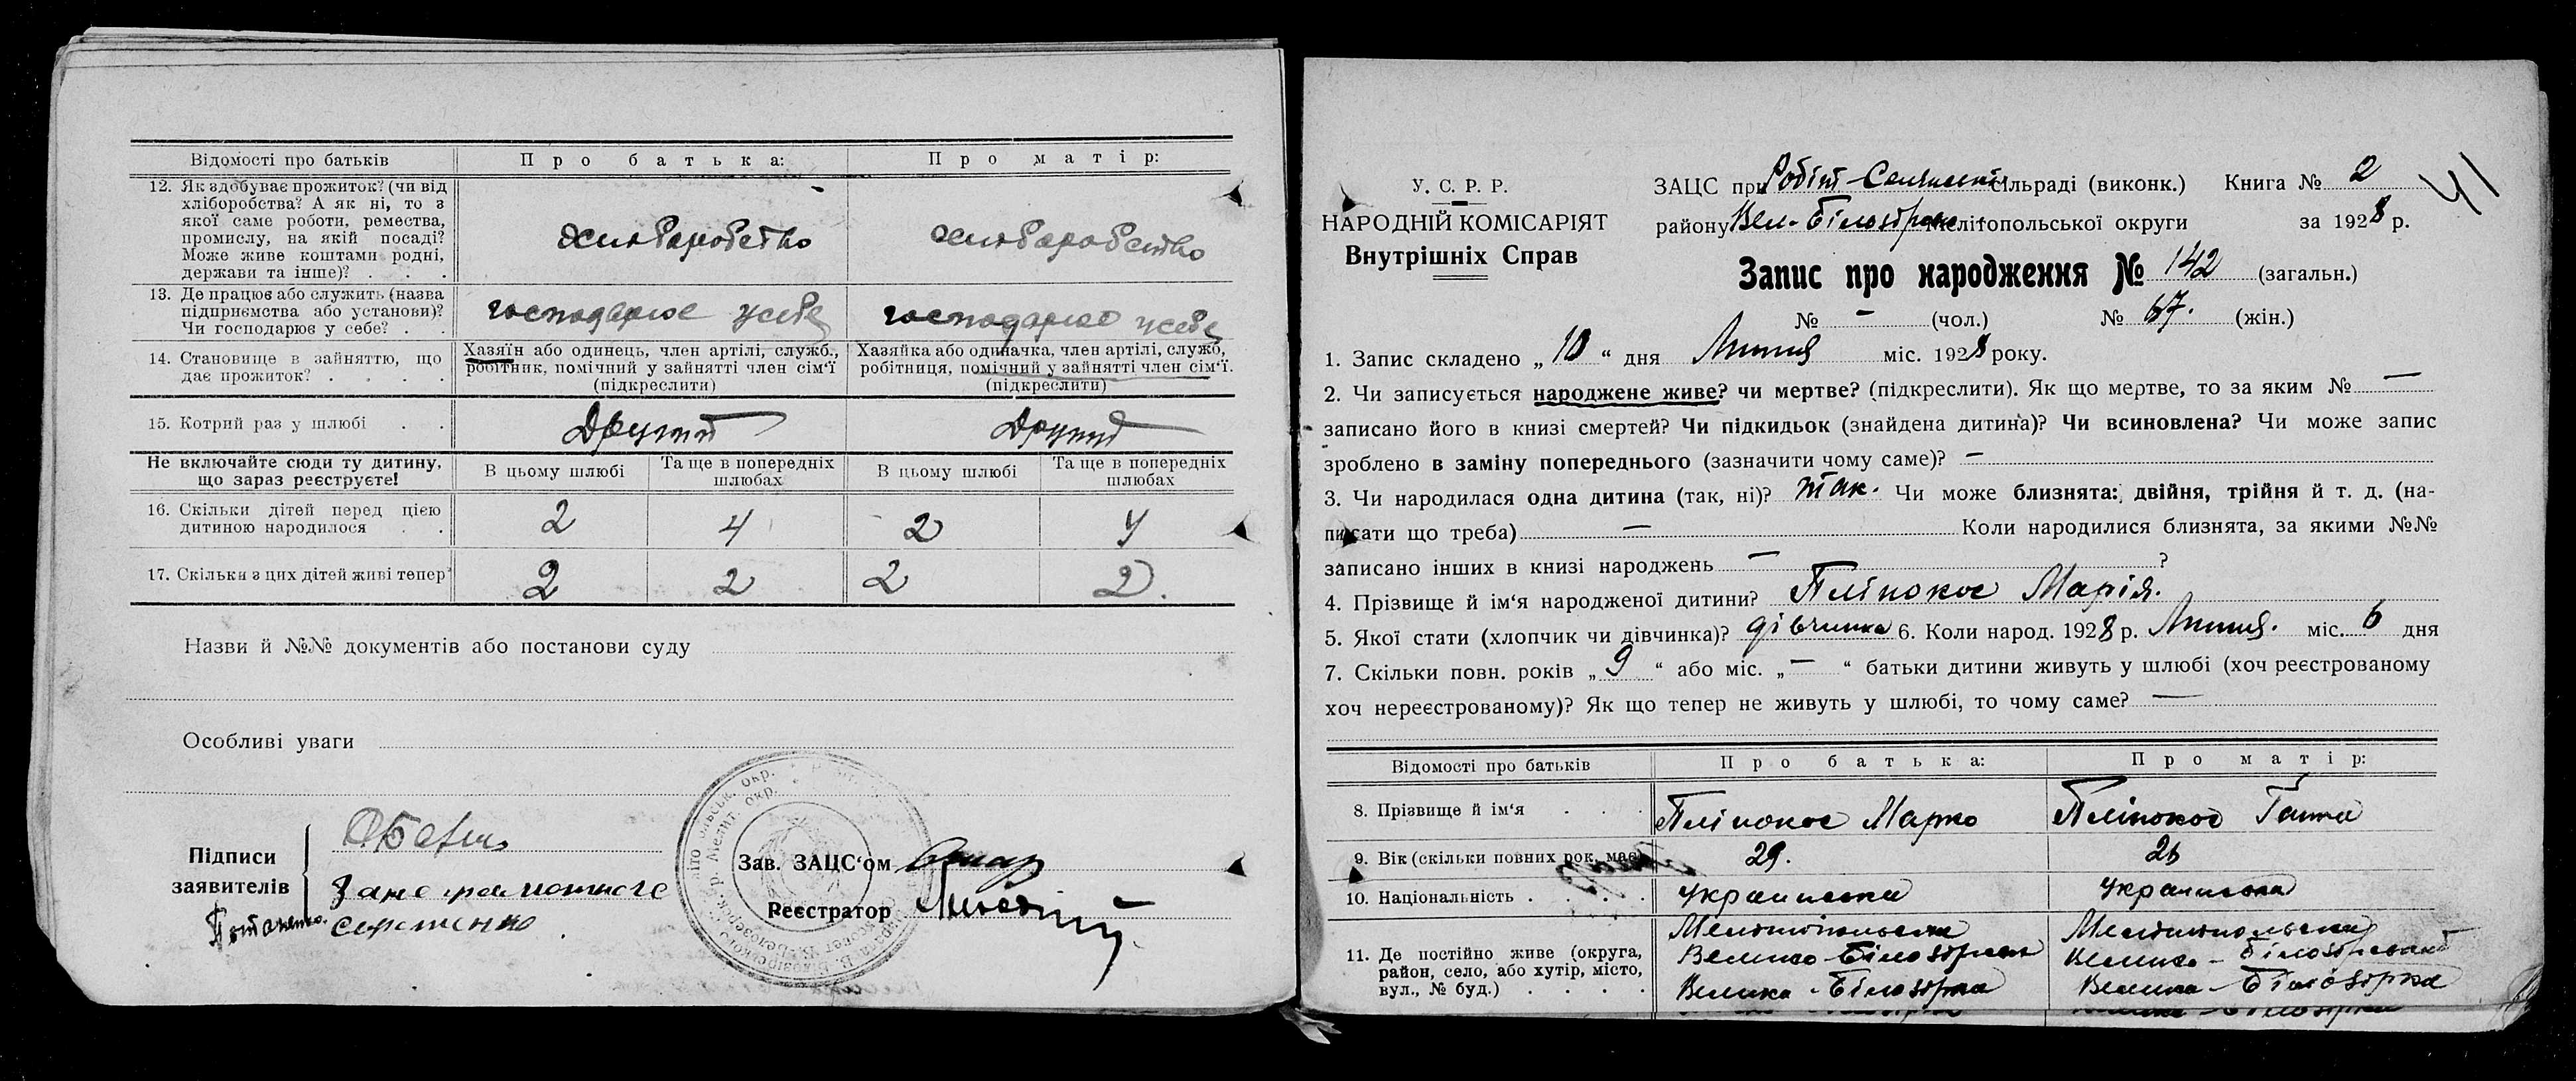 Відомості про батьків Про батька: Про матір:
12. Як здобуває прожиток? (чи від хліборобства? А як ні, то з якої саме роботи, ремества, промислу, на якій посаді? Може живе коштами родні, держави та інше)? . . . хліборобство хліборобство
13. Де працює або служить (назва підприємства або установи)? Чи господарює у себе? . . господарює у себе господарює у себе
14. Становище в зайняттю, що дає прожиток? . . . . Хазяїн або одинець, член артілі, служб., робітник, помічний у зайнятті член сім'ї (підкреслити) Хазяйка або одиначка, член артілі, служб, робітниця, помічний у зайнятті член сім'ї. (підкреслити)
15. Котрий раз у шлюбі . . Другий Другий
Не включайте сюди ту дитину, що зараз реєструєте! В цьому шлюбі Та ще в попередніх шлюбах В цьому шлюбі Та ще в попередніх шлюбах
16. Скільки дітей перед цією дитиною народилося . . 2 4 2 4
17. Скільки з цих дітей живі тепер? 2 2 2 2.
Назви й №№ документів або постанови суду
Особливі уваги
Підписи заявителів
За неграмотного
Зав. ЗАЦС'ом
Реєстратор
41
У. С. Р. Р.
НАРОДНІЙ КОМІСАРІЯТ
Внутрішніх Справ
ЗАЦС при Робітн-Селянській сільраді (виконк.) Книга № 2
району Вел.-Білозірськ Мелітопольської округи за 1928 р.
Запис про народження № 142 (загальн.)
№ — (чол.) № 67. (жін.)
1. Запис складено „ 10 “ дня Липня міс. 1928 року.
2. Чи записується народжене живе? чи мертве? (підкреслити). Як що мертве, то за яким № —
записано його в книзі смертей? Чи підкидьок (знайдена дитина)? Чи всиновлена? Чи може запис
зроблено в заміну попереднього (зазначити чому саме)? —
3. Чи народилася одна дитина (так, ні)? так. Чи може близнята: двійня, трійня й т. д. (на-
писати що треба) — Коли народилися близнята, за якими №№
записано інших в книзі народжень — ?
4. Прізвище й ім'я народженої дитини? Плінокос Марія.
5. Якої стати (хлопчик чи дівчинка)? дівчинка 6. Коли народ. 1928 р. Липня. міс. 6 дня
7. Скільки повн. років „ 9 “ або міс. „ — “ батьки дитини живуть у шлюбі (хоч реєстрованому
хоч нереєстрованому)? Як що тепер не живуть у шлюбі, то чому саме? —
Відомості про батьків Про батька: Про матір:
8. Прізвище й ім'я . . . Плінокос Марко Плінокос Ганна
9. Вік (скільки повних рок. має) 29. 26
10. Національність . . . . . Українська Українська
11. Де постійно живе (округа, район, село, або хутір, місто, вул., № буд.) . . . . Мелітопольська Велико-Білозірськ Велика-Білозірка Мелітопольська Велико-Білозірський Велика-Білозірка